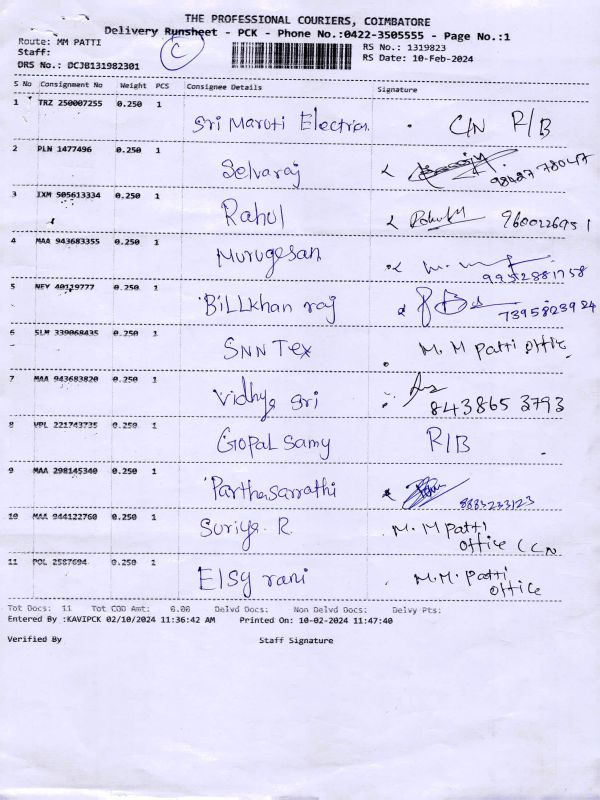 THE PROFESSIONAL COURIERS, COIMBATORE
Delivery Runsheet - PCK - Phone No.:0422-3505555 - Page No.:1
Route: MM PATTI
C
RS No.: 1319823
Staff:
RS Date: 10-Feb-2024
DRS No.: DCJB131982301
S No Consignment No Weight PCS Consignee Details Signature
1 TRZ 250007255 0.250 1 Sri Maruti C/N R/B
2 PLN 1477496 0.250 1 Selvaraj
3 IXM 505613334 0.250 1 Rahul
4 MAA 943683355 0.250 1 Murugesan
5 NEY 40119777 0.250 1 Billkhan raj 7395823924
6 SLM 339068435 0.250 1 SNN Tex M. M Patti office
7 MAA 943683820 0.250 1 Vidhya Sri 843865 3793
8 VPL 221743735 0.250 1 Gopal Samy R/B
9 MAA 298145340 0.250 1 Parthasarrathi
10 MAA 944122760 0.250 1 Suriya. R M. M Patti
office (CN
11 POL 2587694 0.250 1 Elsy rani M. M. Patti
office
Tot Docs: 11 Tot COD Amt: 0.00 Delvd Docs: Non Delvd Docs: Delvy Pts:
Entered By :KAVIPCK 02/10/2024 11:36:42 AM Printed On: 10-02-2024 11:47:40
Verified By Staff Signature